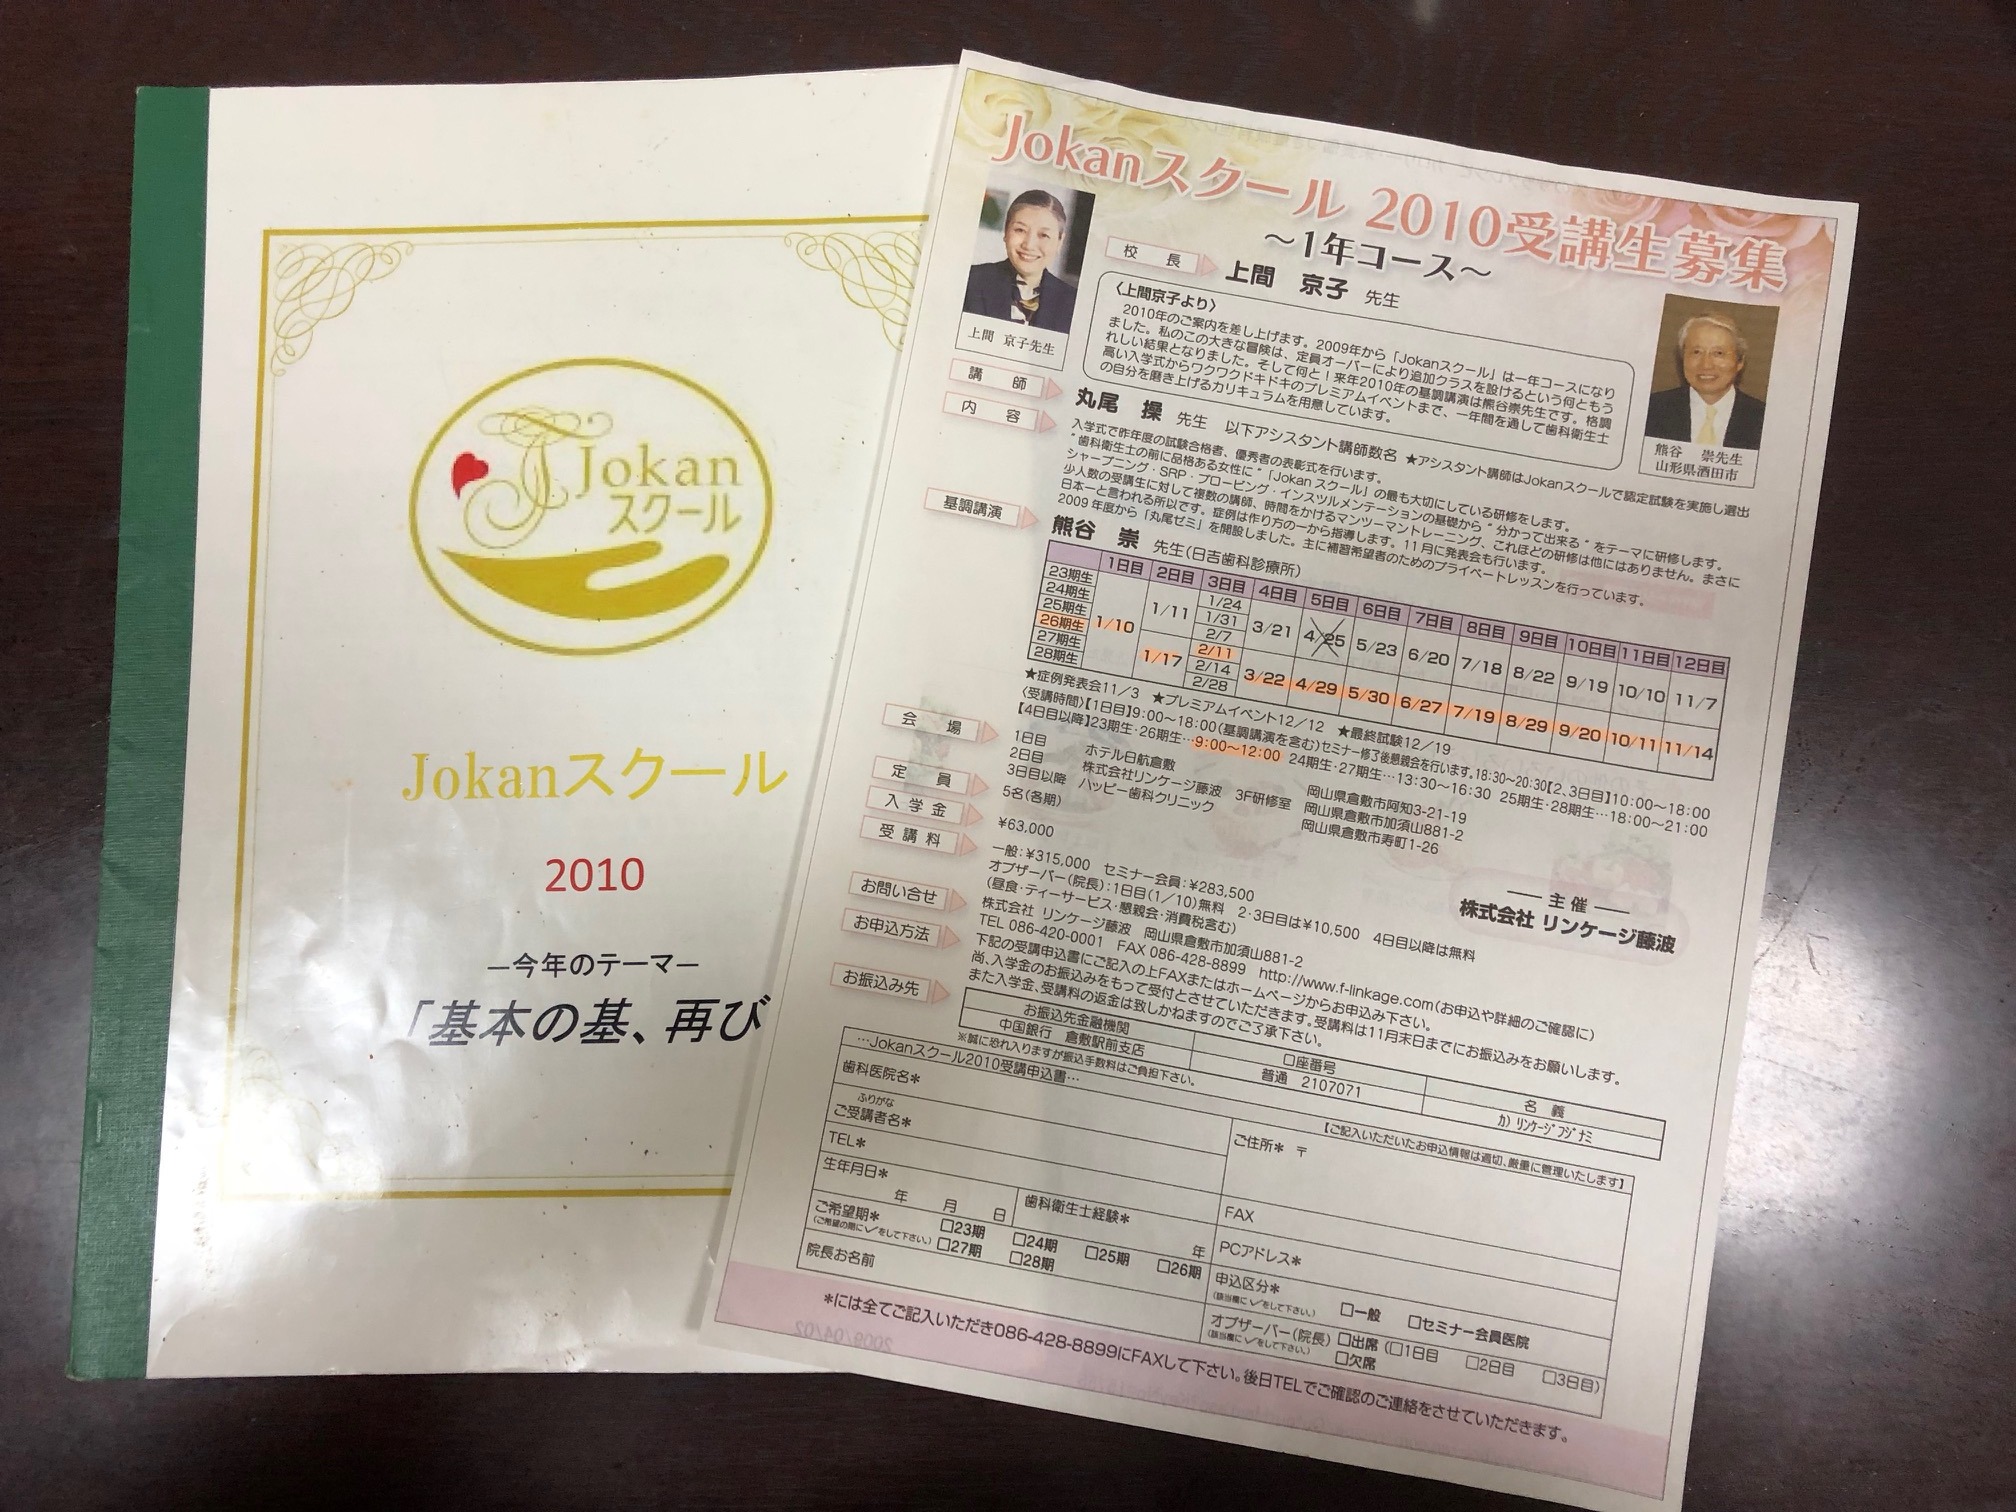 Jokan
スクール
Jokanスクール
2010
―今年のテーマ―
「基本の基、再び
Jokanスクール 2010受講生募集
～1年コース～
校長 上間 京子 先生
上間 京子先生
〈上間京子より〉
2010年のご案内を差し上げます。2009年から「Jokanスクール」は一年コースになり
ました。私のこの大きな冒険は、定員オーバーにより追加クラスを設けるという何ともう
れしい結果となりました。そして何と！来年2010年の基調講演は熊谷崇先生です。格調
高い入学式からワクワクドキドキのプレミアムイベントまで、一年間を通して歯科衛生士
の自分を磨き上げるカリキュラムを用意しています。
熊谷 崇先生
山形県酒田市
講師 丸尾 操 先生 以下アシスタント講師数名 ★アシスタント講師はJokanスクールで認定試験を実施し選出
内容 入学式で昨年度の試験合格者、優秀者の表彰式を行います。
"歯科衛生士の前に品格ある女性に"「Jokan スクール」の最も大切にしている研修をします。
シャープニング・SRP・プロービング・インスツルメンテーションの基礎から"分かって出来る"をテーマに研修します。
少人数の受講生に対して複数の講師、時間をかけるマンツーマントレーニング、これほどの研修は他にはありません。まさに
日本一と言われる所以です。症例は作り方の一から指導します。11月に発表会も行います。
2009年度から「丸尾ゼミ」を開設しました。主に補習希望者のためのプライベートレッスンを行っています。
基調講演 熊谷 崇 先生(日吉歯科診療所)
1日目 2日目 3日目 4日目 5日目 6日目 7日目 8日目 9日目 10日目 11日目 12日目
23期生 1/10 1/11 1/24 3/21 4/25 5/23 6/20 7/18 8/22 9/19 10/10 11/7
24期生 1/31
25期生 2/7
26期生 1/17 2/11 3/22 4/29 5/30 6/27 7/19 8/29 9/20 10/11 11/14
27期生 2/14
28期生 2/28
★症例発表会11/3 ★プレミアムイベント12/12 ★最終試験12/19
〈受講時間〉【1日目】9:00～18:00(基調講演を含む)セミナー修了後懇親会を行います。18:30～20:30【2、3日目】10:00～18:00
【4日目以降】23期生・26期生…9:00～12:00 24期生・27期生…13:30～16:30 25期生・28期生…18:00～21:00
会場 1日目 ホテル日航倉敷 岡山県倉敷市阿知3-21-19
2日目 株式会社リンケージ藤波 3F研修室 岡山県倉敷市加須山881-2
3日目以降 ハッピー歯科クリニック 岡山県倉敷市寿町1-26
定員 5名(各期)
入学金 ¥63,000
受講料 一般:¥315,000 セミナー会員:¥283,500
オブザーバー(院長):1日目(1/10)無料 2・3日目は¥10,500 4日目以降は無料
(昼食・ティーサービス・懇親会・消費税含む)
― 主催 ―
株式会社 リンケージ藤波
お問い合せ 株式会社 リンケージ藤波 岡山県倉敷市加須山881-2
TEL 086-420-0001 FAX 086-428-8899 http://www.f-linkage.com(お申込や詳細のご確認に)
お申込方法 下記の受講申込書にご記入の上FAXまたはホームページからお申込み下さい。
尚、入学金のお振込みをもって受付とさせていただきます。受講料は11月末日までにお振込みをお願いします。
また入学金、受講料の返金は致しかねますのでご了承下さい。
お振込み先 お振込先金融機関 口座番号 名義
中国銀行 倉敷駅前支店 普通 2107071 カ)リンケージフジナミ
※誠に恐れ入りますが振込手数料はご負担下さい。
…Jokanスクール2010受講申込書…
【ご記入いただいたお申込情報は適切、厳重に管理いたします】
歯科医院名*
ふりがな
ご受講者名*
ご住所* 〒
TEL*
FAX
生年月日* 年 月 日
歯科衛生士経験* 年
PCアドレス*
ご希望期* □23期 □24期 □25期 □26期
(ご希望の際に✓をして下さい。) □27期 □28期
申込区分* □一般 □セミナー会員医院
(該当欄に✓をして下さい。)
院長お名前
オブザーバー(院長) □出席 (□1日目 □2日目 □3日目)
(該当欄に✓をして下さい。) □欠席
*には全てご記入いただき086-428-8899にFAXして下さい。後日TELでご確認のご連絡をさせていただきます。